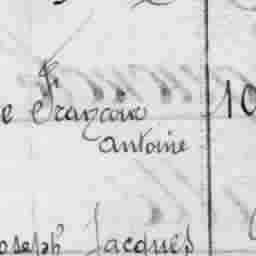 e François 10
Antoine
oseph Jacques